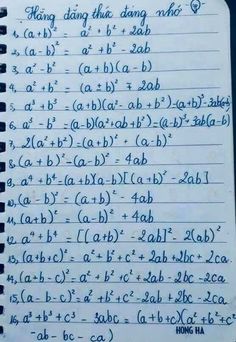 Hằng đẳng thức đáng nhớ
1, (a+b)² = a² + b² + 2ab
2, (a-b)² = a² + b² - 2ab
3, a² - b² = (a+b)(a-b)
4, a² + b² = (a ± b)² ∓ 2ab
5, a³ + b³ = (a+b)(a² - ab + b²) = (a+b)³ - 3ab(a+b)
6, a³ - b³ = (a-b)(a² + ab + b²) = (a-b)³ + 3ab(a-b)
7, 2(a² + b²) = (a+b)² + (a-b)²
8, (a+b)² - (a-b)² = 4ab
9, a⁴ - b⁴ = (a+b)(a-b)[(a+b)² - 2ab]
10, (a-b)² = (a+b)² - 4ab
11, (a+b)² = (a-b)² + 4ab
12, a⁴ + b⁴ = [(a+b)² - 2ab]² - 2(ab)²
13, (a+b+c)² = a² + b² + c² + 2ab + 2bc + 2ca
14, (a+b-c)² = a² + b² + c² + 2ab - 2bc - 2ca
15, (a-b-c)² = a² + b² + c² - 2ab + 2bc - 2ca
16, a³ + b³ + c³ - 3abc = (a+b+c)(a² + b² + c²
- ab - bc - ca)
HONG HA